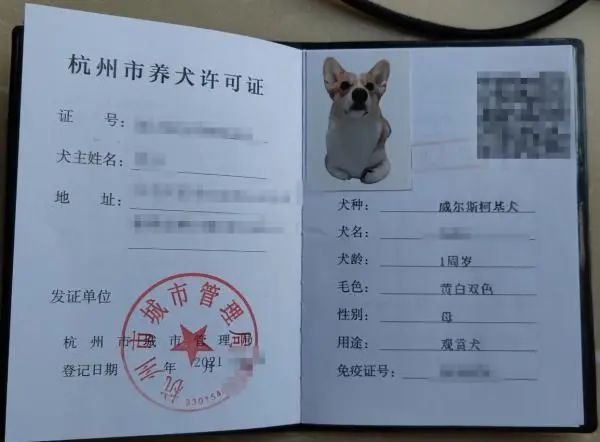 杭州市养犬许可证
证 号：
犬主姓名：
地 址：
发证单位
杭州市城市管理局
登记日期 2021 年 月
杭州市城市管理局
330154
犬种： 威尔斯柯基犬
犬名：
犬龄： 1周岁
毛色： 黄白双色
性别： 母
用途： 观赏犬
免疫证号：